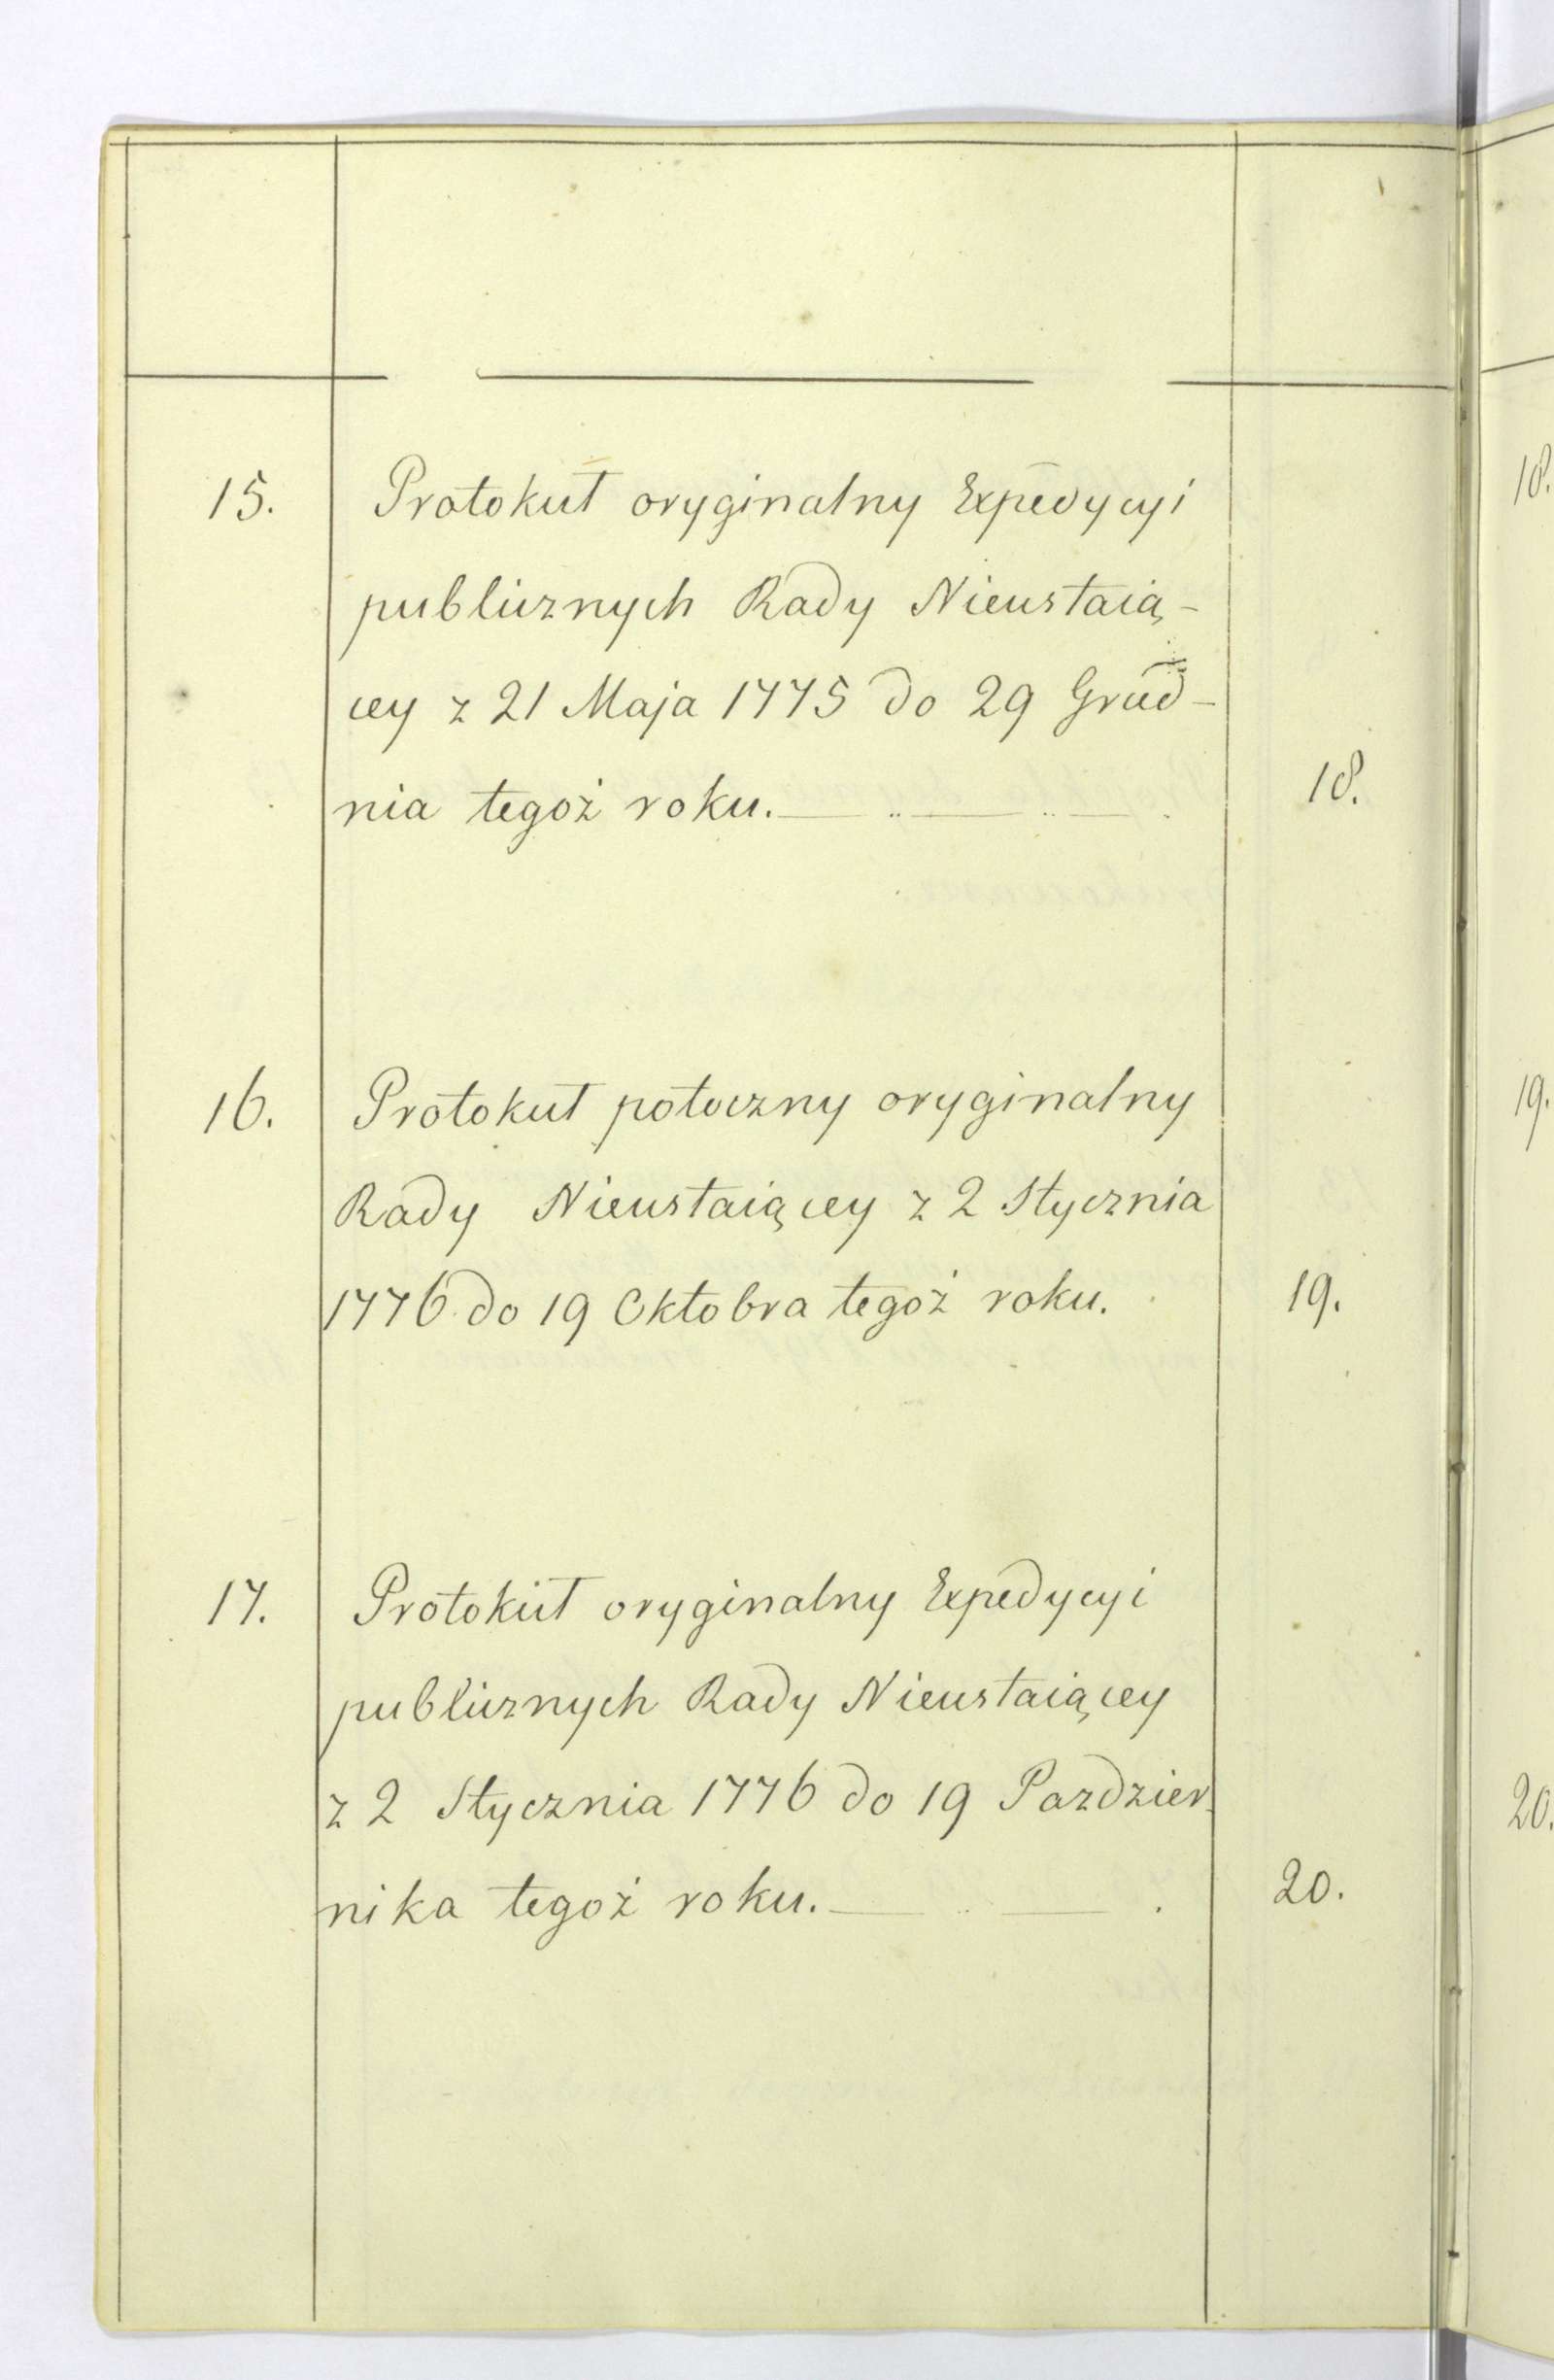 15. Protokuł oryginalny Expedycyi
publicznych Rady Nieustaią-
cey z 21 Maja 1775 do 29 Grud-
nia tegoż roku. 18.
16. Protokuł potoczny oryginalny
Rady Nieustaiącey z 2 Stycznia
1776 do 19 Oktobra tegoż roku. 19.
17. Protokuł oryginalny Expedycyi
publicznych Rady Nieustaiącey
z 2 Stycznia 1776 do 19 Pazdzier-
nika tegoż roku. 20.
18.
19.
20.